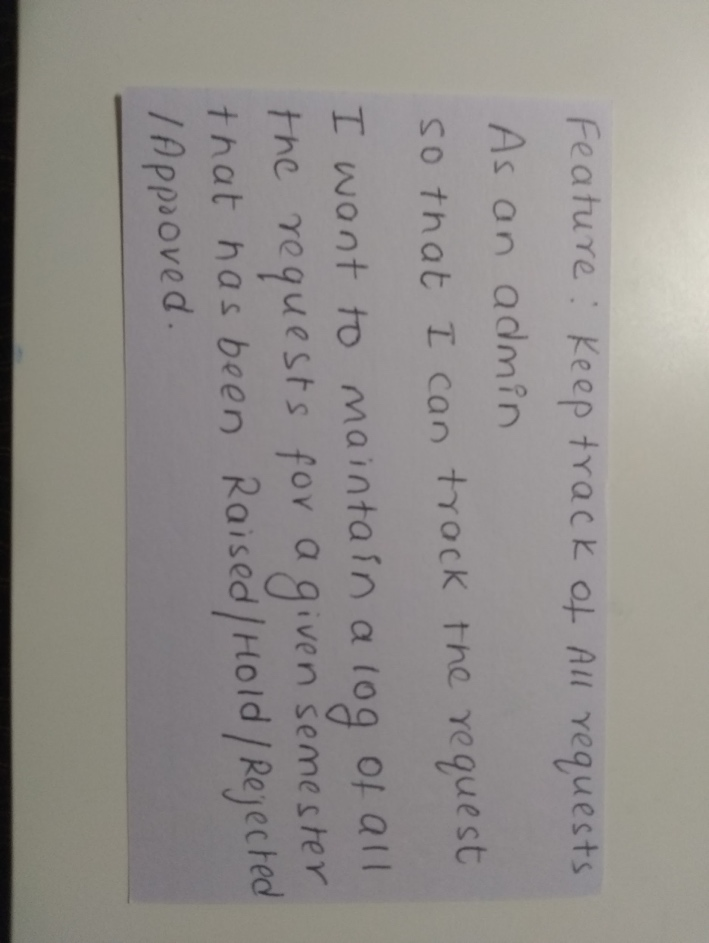 Feature: Keep track of All requests
As an admin
so that I can track the request
I want to maintain a log of all
the requests for a given semester
that has been Raised/Hold/Rejected
/Approved.